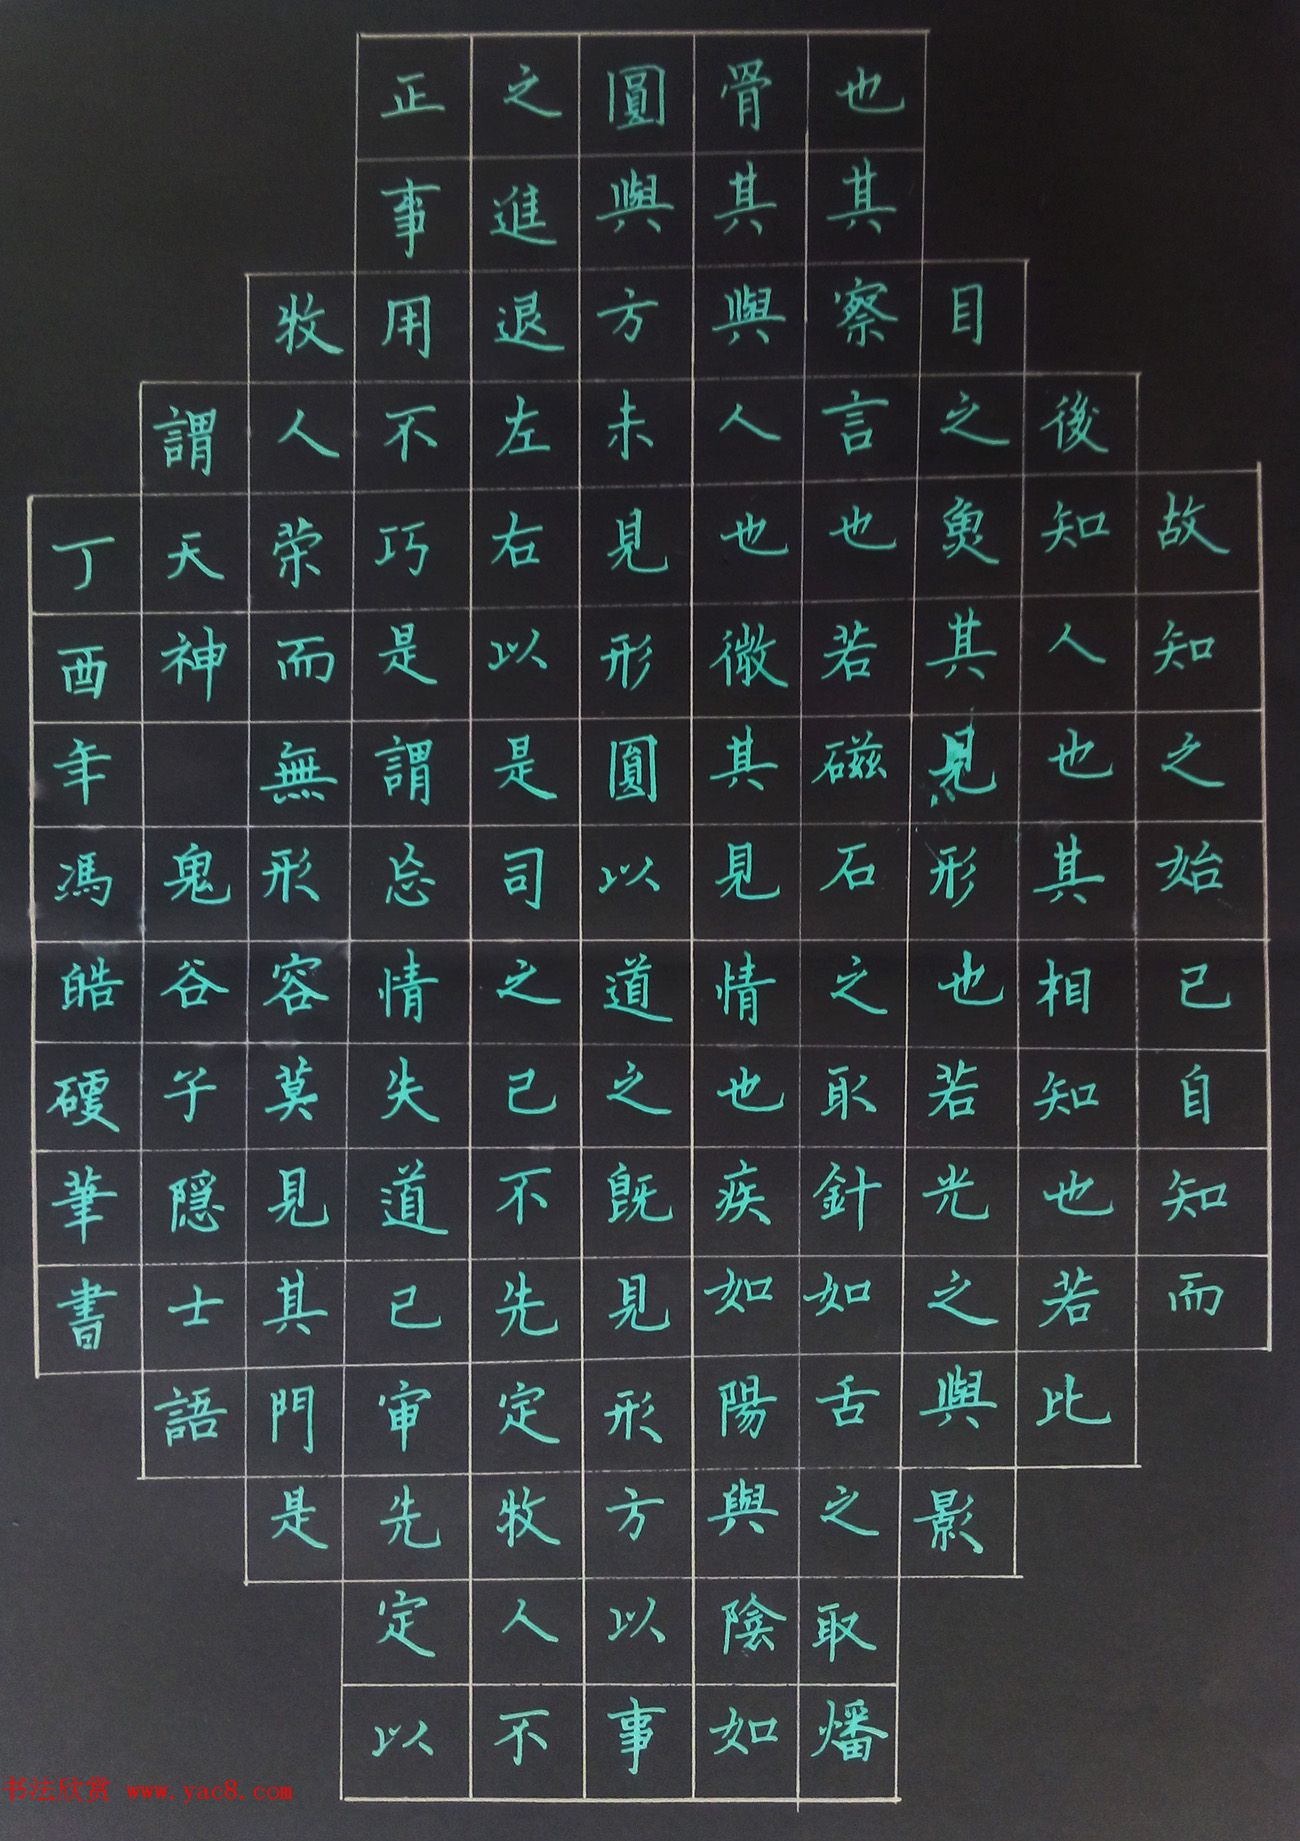 故知之始己自知而
後知人也其相知也若比
目之魚其見形也若光之與影
也其察言也若磁石之取針如舌之取燔
骨其與人也微其見情也疾如陽與陰如
圓與方未見形圓以道之既見形方以事
之進退左右以是司之己不先定牧人不
正事用不巧是謂忘情失道己审先定以
牧人荣而無形容莫見其門是
謂天神 鬼谷子隐士語
丁酉年馮皓硬筆書
书法欣赏 www.yac8.com